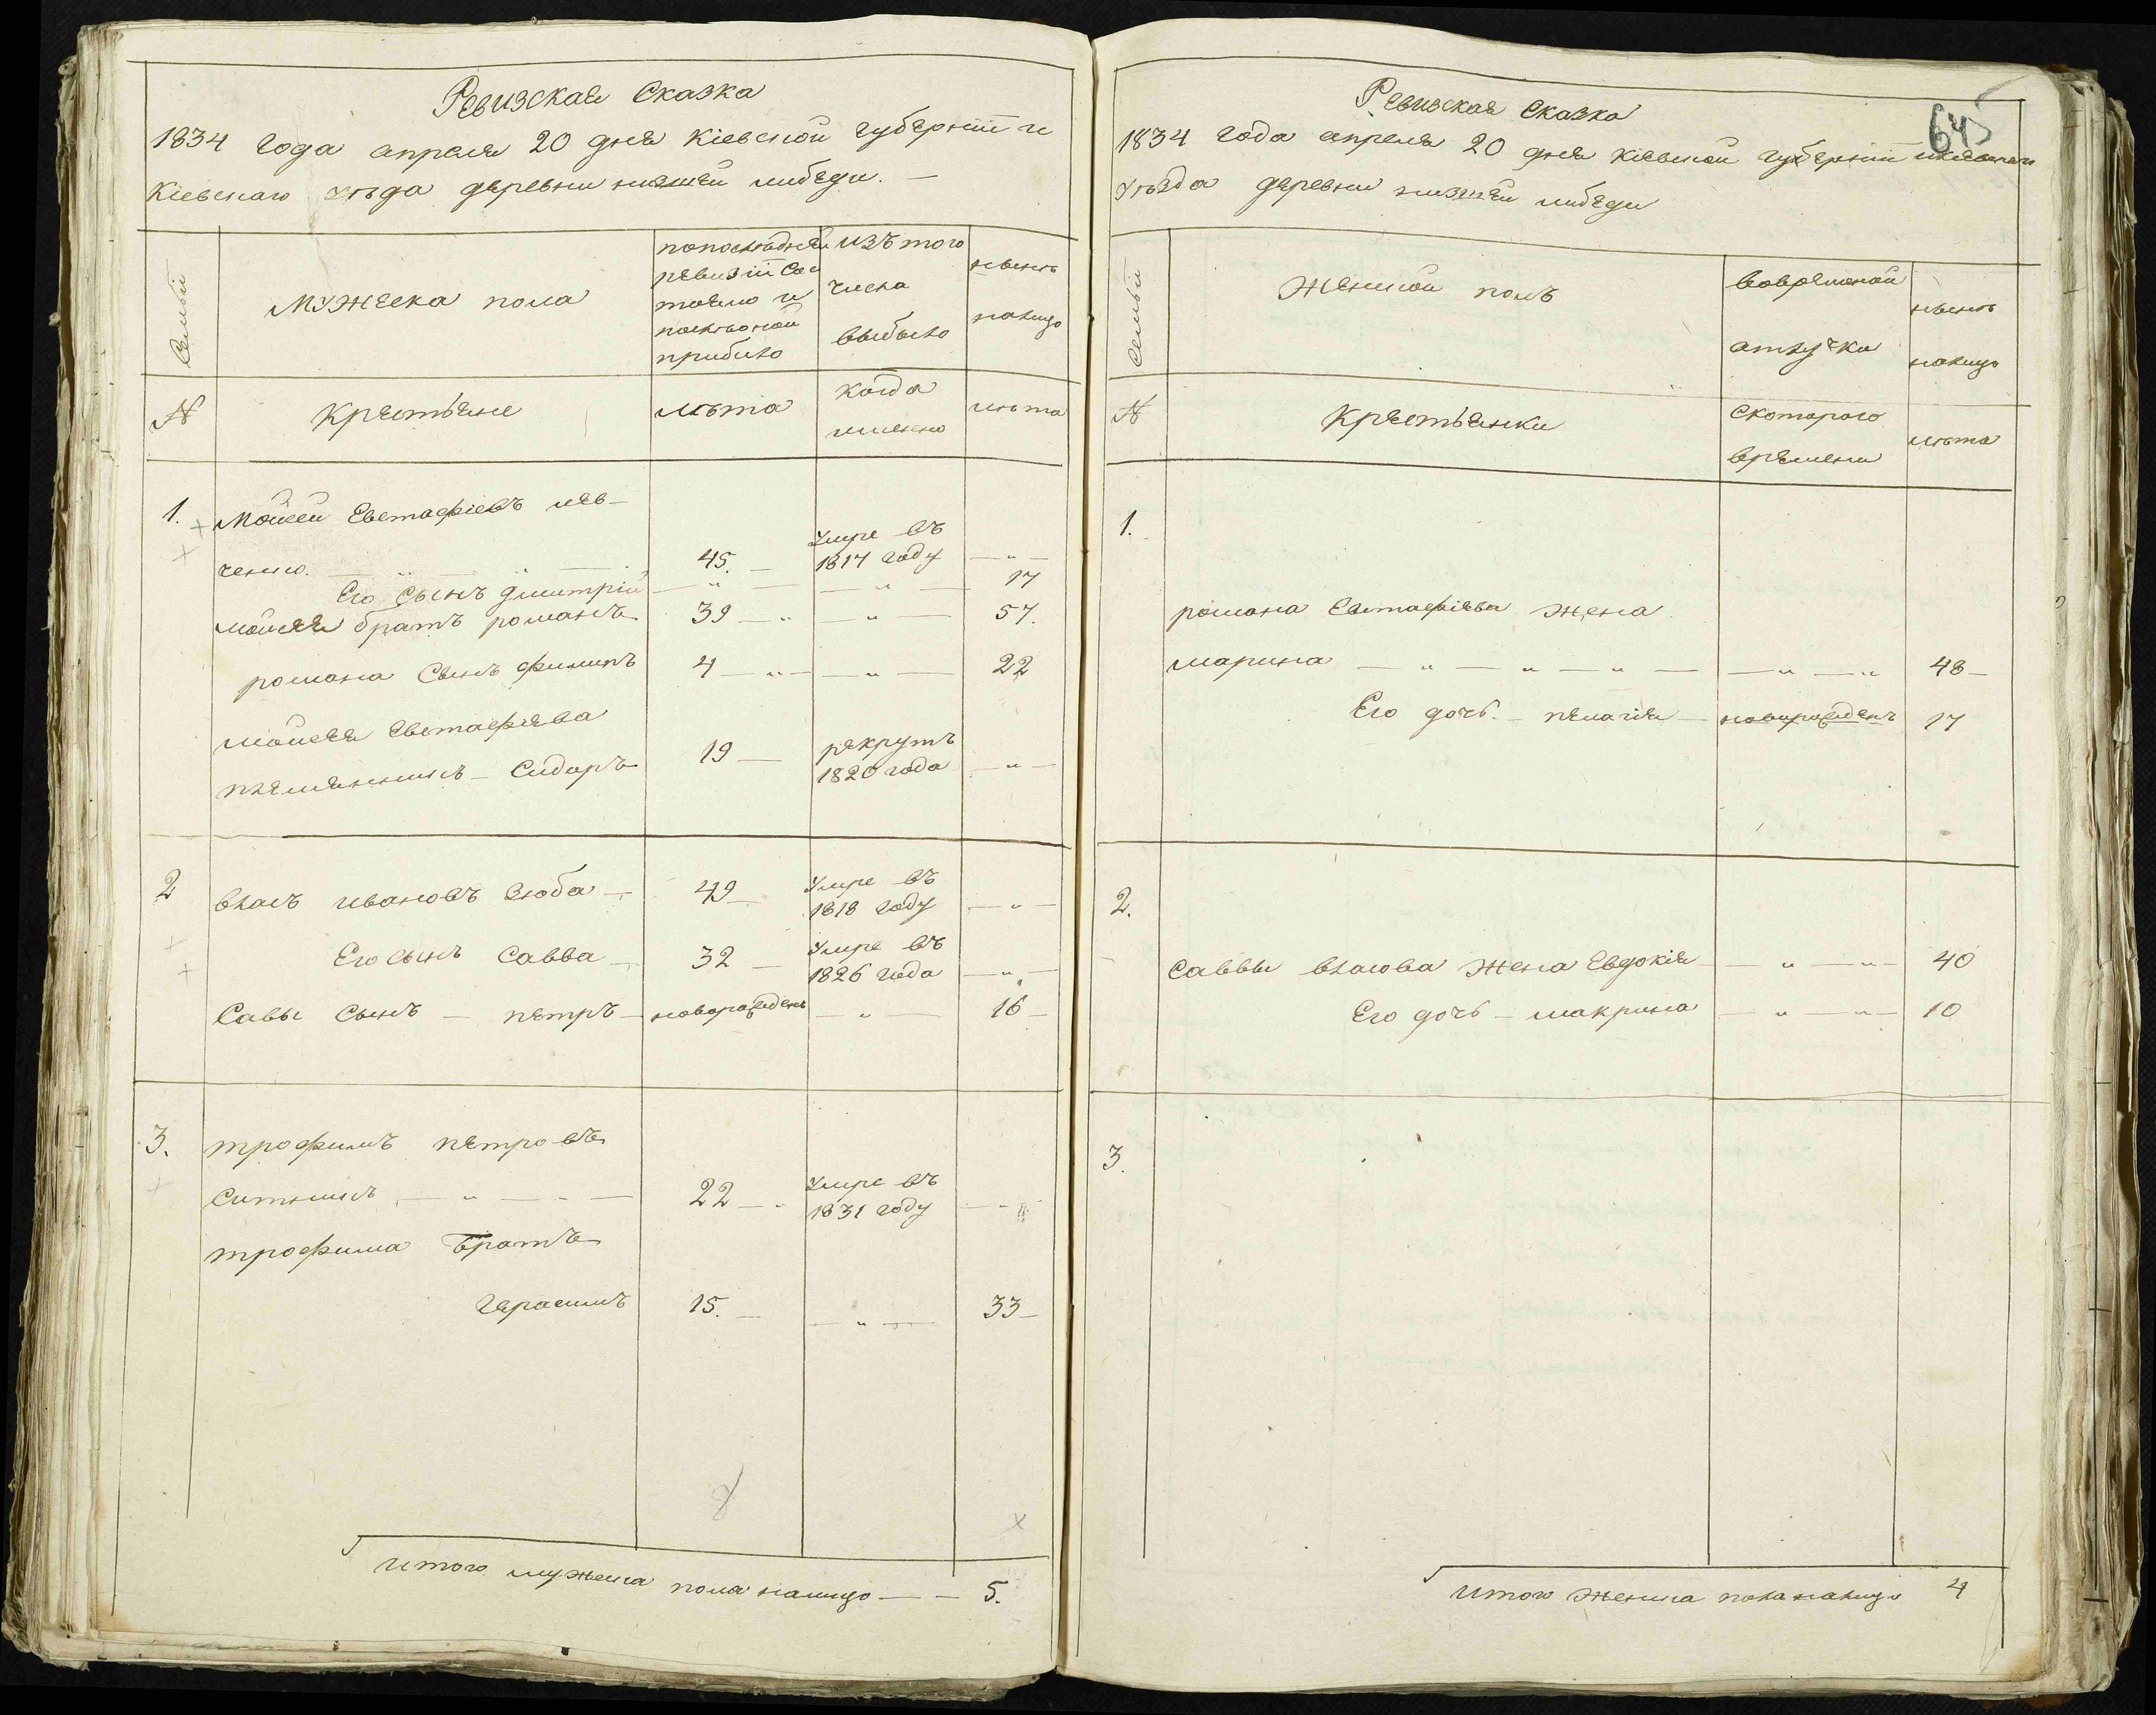 Ревизская Сказка
1834 года апреля 20 дня Кіевской губерніи и
Кіевскаго уѣзда деревни низшей либеди. —
Семьи
мужеска пола
попослѣдней
ревизіи Сос
тояло и
послѣоной
прибыло
изъ того
числа
выбыло
нынѣ
налицо
N
Крестьяне
лѣта
когда
именно
лѣта
1.
Мойсей Евстафіевъ лев-
ченко. — „ — „ —
45. —
Умре въ
1817 году
— „ —
Его Сынъ Димитрій — „ — — „ — 17
мойсея братъ романъ 39 — „ — „ — 57.
романа Сынъ филипъ 4 — „ — — „ — 22
мойсея Евстафіева
племянникъ — Сидоръ 19 —
рекрутъ
1820 года
— „ —
2
власъ ивановъ Зюба — 49 —
Умре въ
1818 году
— „ —
Его сынъ Савва — 32 —
Умре въ
1826 года
— „ —
Савы Сынъ — петръ — новорожденъ — „ — 16 —
3.
трофимъ петровъ
Ситникъ — „ — „ — 22 — „
Умре въ
1831 году
— „
трофима Братъ
Герасимъ 15. — — „ — 33 —
итого мужеска пола налицо — — 5.
645
Ревизская Сказка
1834 года апреля 20 дня Кіевской губерніи икіевскаго
Уѣзда деревни низшей либеди
Семьи
Женской полъ
вовременой
отлучки
нынѣ
налицо
N
Крестьянки
Скотораго
времени
лѣта
1.
романа Евстафіева жена
марина — „ — „ — „ — — „ — „ 48 —
Его дочь — пелагія — новорожденъ 17
2.
Саввы власова жена Евдокія — „ — „ — 40
Его дочь — макрина — „ — „ — 10
3.
Итого женска пола налицо 4